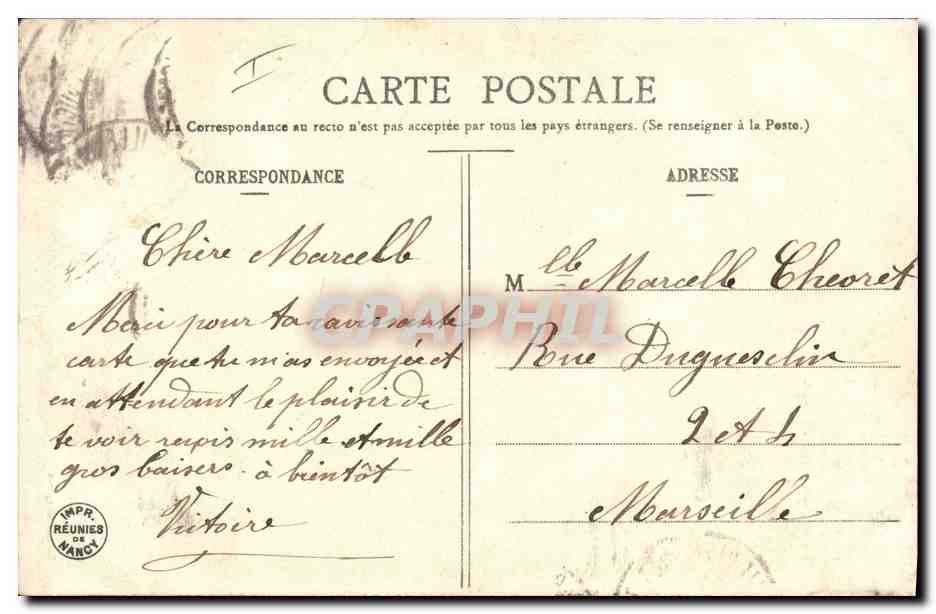 I
CARTE POSTALE
La Correspondance au recto n'est pas acceptée par tous les pays étrangers. (Se renseigner à la Poste.)
CORRESPONDANCE
Chère Marcelle
Merci pour ta ravissante
carte que tu m'as envoyée et
en attendant le plaisir de
te voir reçois mille et mille
gros baisers. à bientôt
Victoire
IMPR.
RÉUNIES
DE
NANCY
ADRESSE
Mlle Marcelle Theoret
Rue Duguesclin
2 et 4
Marseille
CPAPHIL